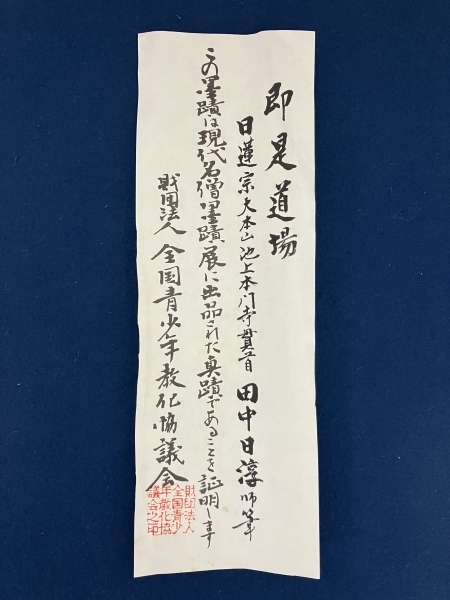 即是道場
日蓮宗大本山池上本門寺貫首 田中日淳師筆
この墨蹟は現代名僧墨蹟展に出品された真蹟であることを証明します
財団法人 全国青少年教化協議会
財団法人
全国青少
年教化協
議会之印